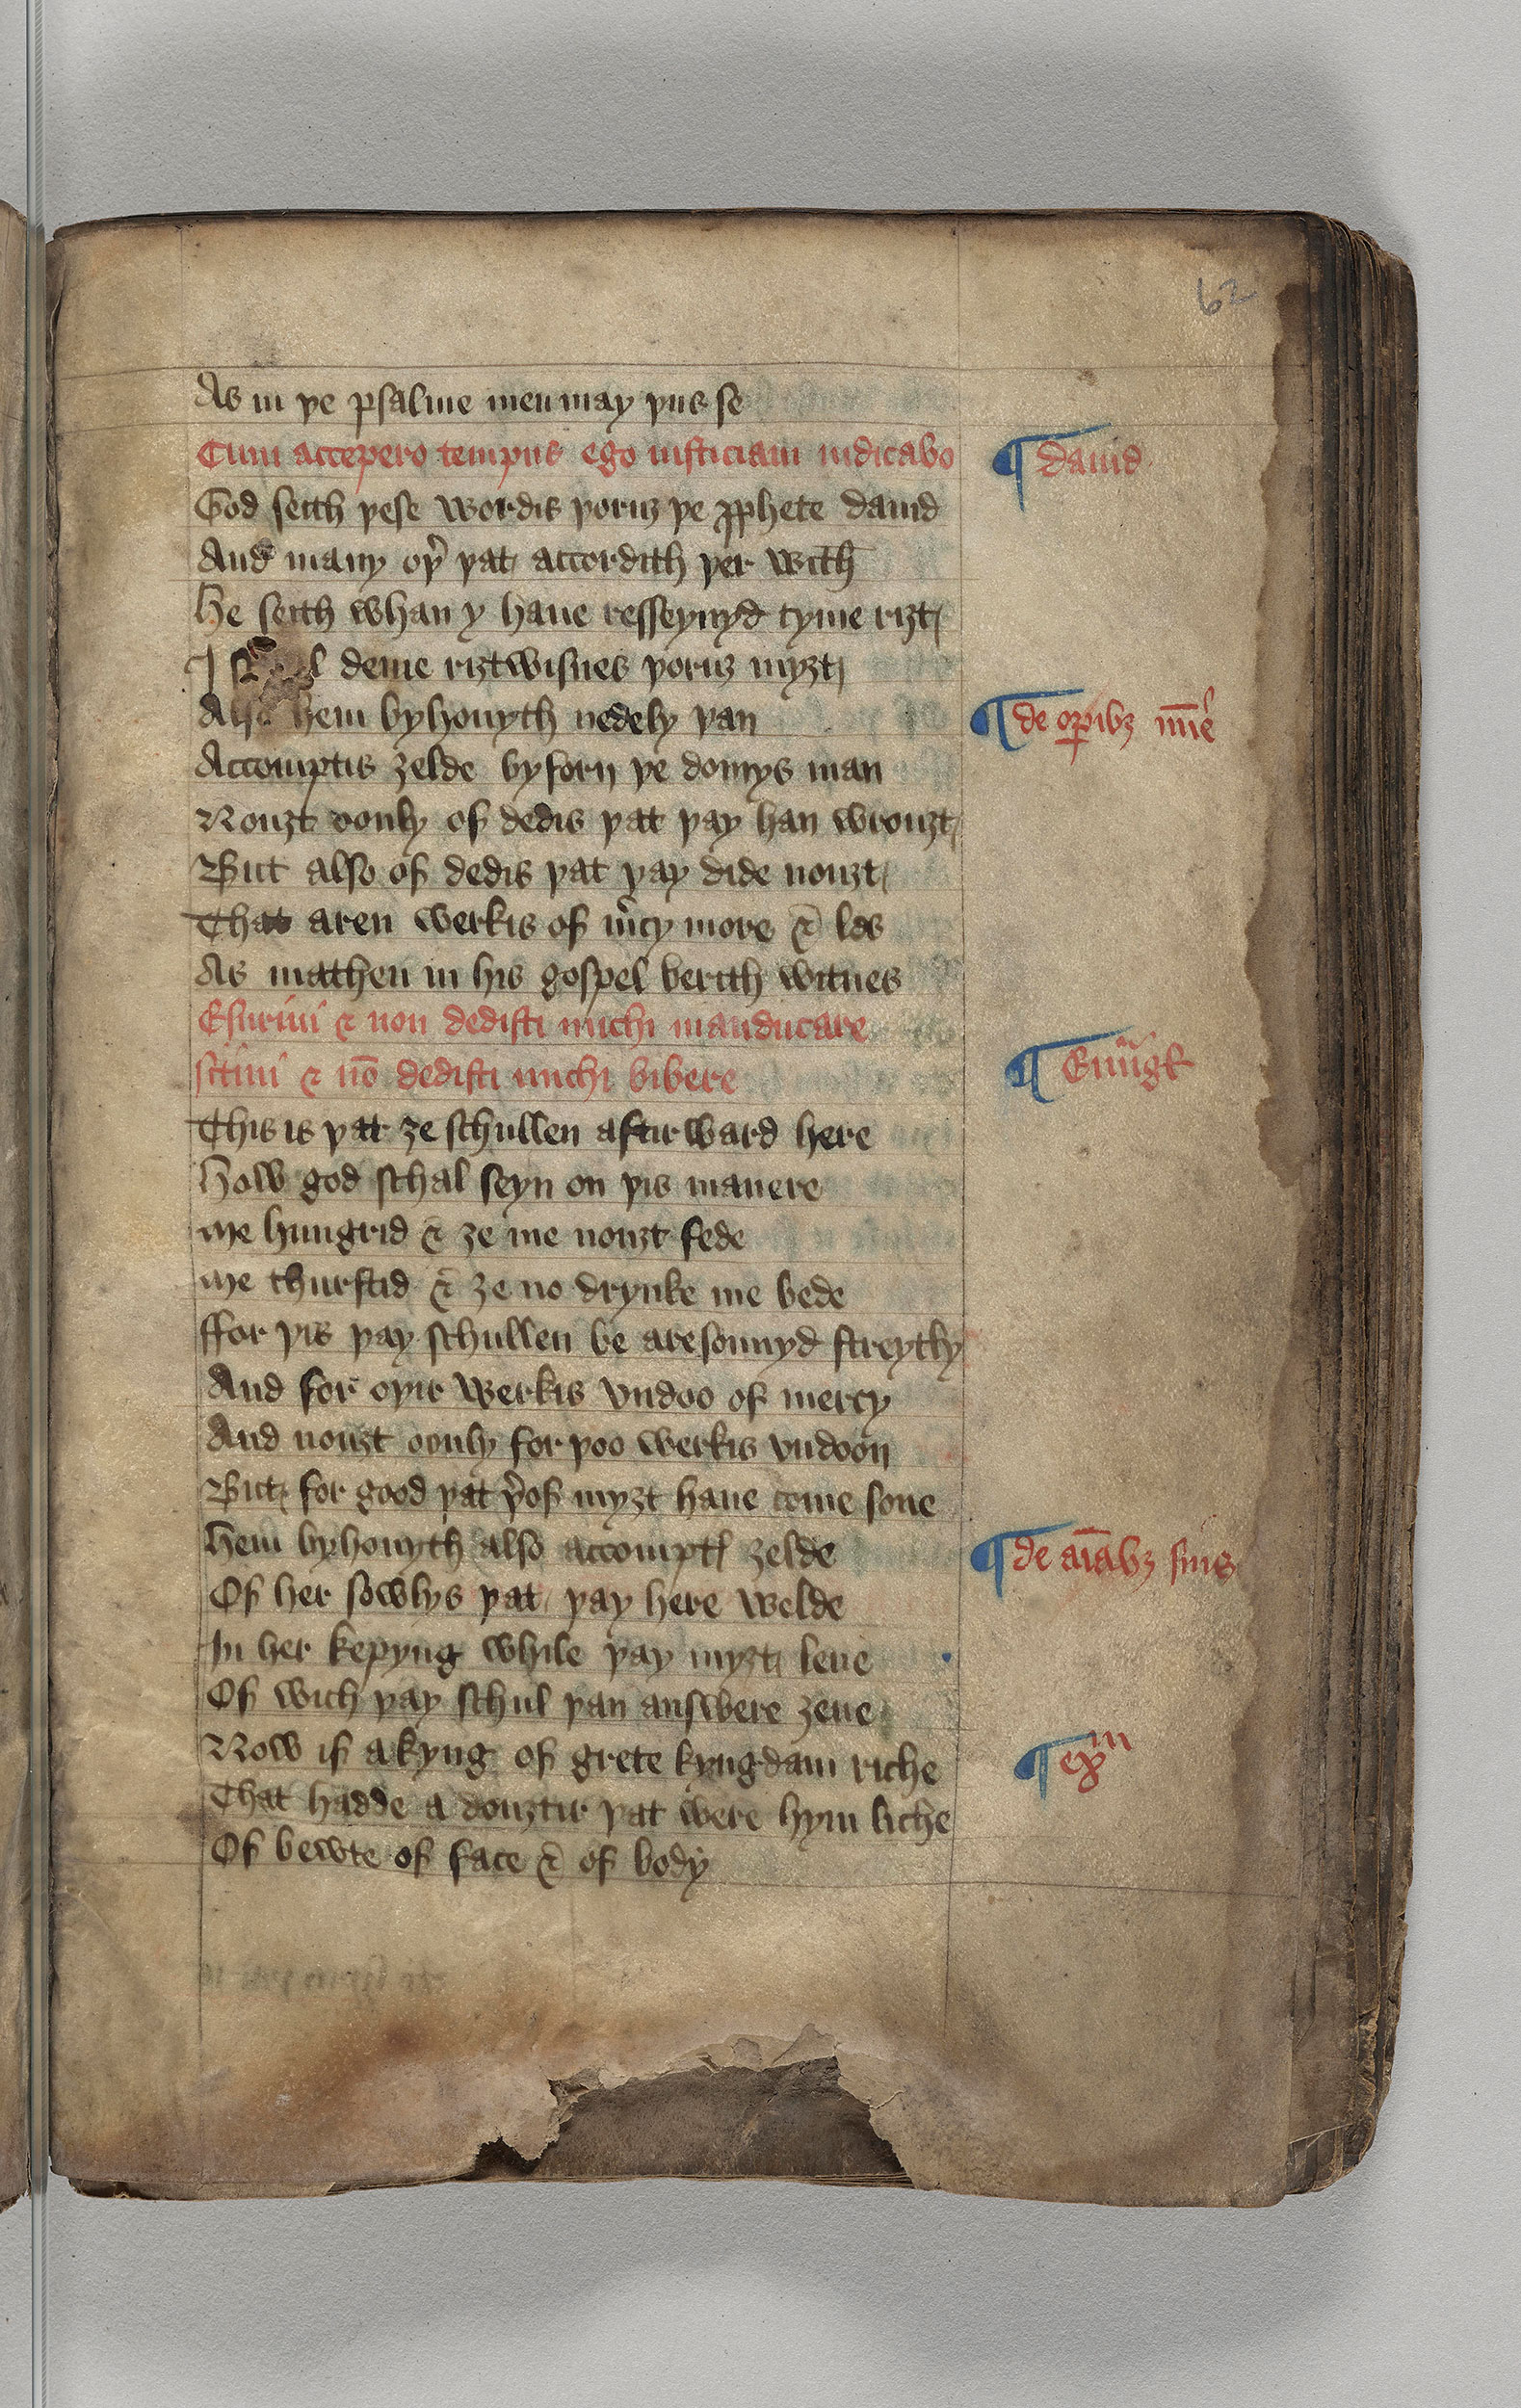 62
As in þe psalme men may þus se
Cum accepero tempus ego iusticiam iudicabo
¶ dauid
God seith þese wordis þoruȝ þe ꝓphete dauid
And many oþ̉ þat accordith þer with
He seith whan y haue resseyuyd tyme riȝt
I l deme riȝtwisnes þoruȝ myȝt
Also hem byhouyth nedely þan
¶ de oꝑibȝ
Accomptis ȝelde byforn þe domys man
Nouȝt oonly of dedis þat þay han wrouȝt
But also of dedis þat þay dide nouȝt
That aren werkis of m̉cy more & les
As matheu in his gospel berith witnes
Esuriui & non dedisti michi manducare
sitiui & nō dedisti michi bibere
¶
This is þat ȝe schullen aftirward here
How god schal seyn on þis manere
me hungrid & ȝe me nouȝt fede
me thurstid & ȝe no drynke me bede
ffor þis þay schullen be aresounyd streytly
And for oþir werkis vndoo of mercy
And nouȝt oonly for þoo werkis vndoon
But for good þat þ̉of myȝt haue come sone
Hem byhouyth also accomptꝭ ȝelde
¶ de aīabȝ suis
Of her sowlys þat þay here welde
In her kepyng while þay myȝt leue
Of wich þay schul þan answere ȝeue
Now is a kyng of grete kyngdam riche
¶ exᵐ
That hadde a douȝtir þat were hym liche
Of bewte of face & of body